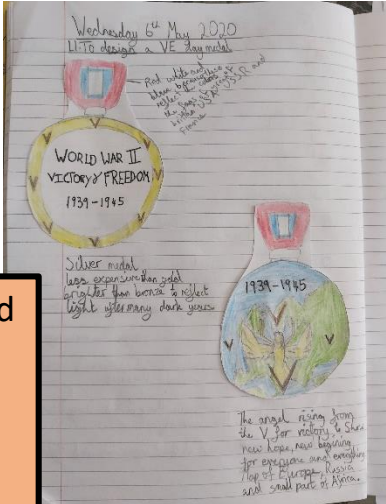 Wednesday 6th May 2020
LI: To design a VE Day medal
Red white and
blue
reflect the colors
the flags of
britain USA USSR and
France
WORLD WAR II
VICTORY & FREEDOM
1939-1945
Silver medal
less expensive than gold
brighter than bronze to reflect
light after many dark years
d
1939-1945
The angel rising from
the V for victory to Show
new hope, new begining
for everyone and everything
Map of Europe, Russia
and small part of Africa.